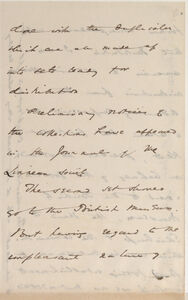 done with the duplicates
which are all made up
into sets ready for
distribution
Preliminary notices to
the collection have appeared
in the Journal of the
Linnean Society
The second set should
go to the British Museum.
But having regard to the
unpleasant nature of